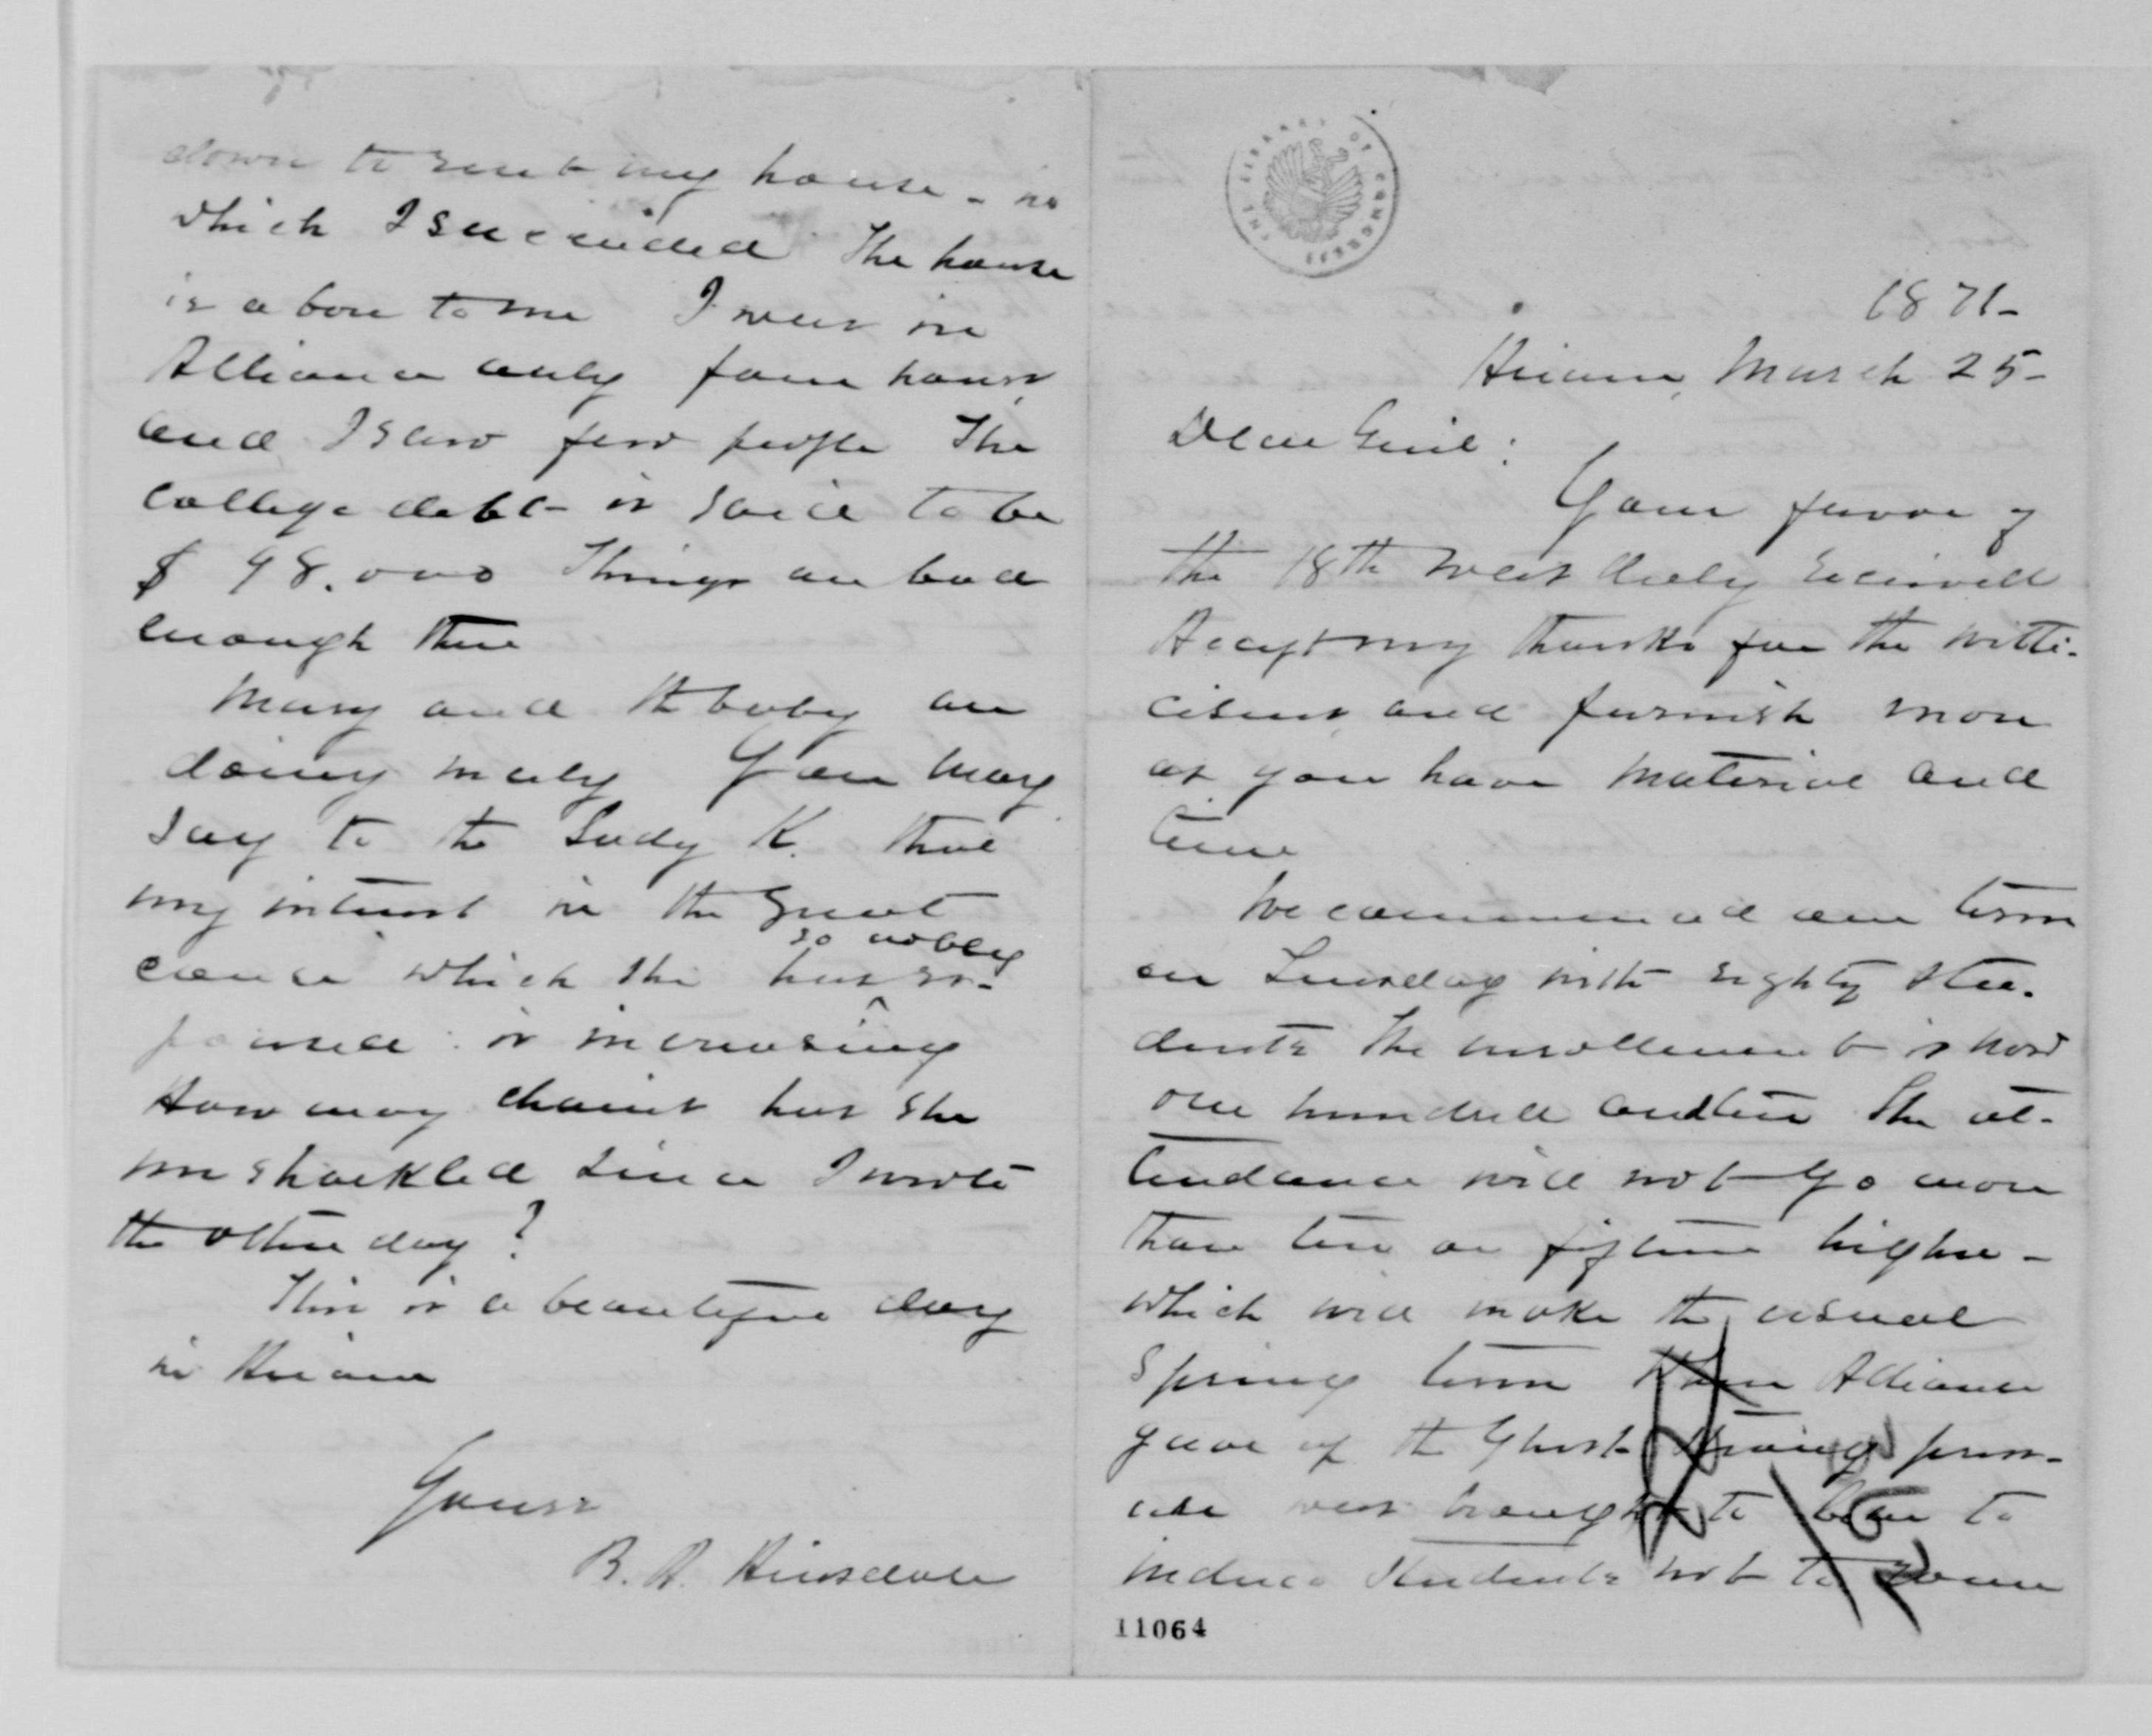 1871-
Hiram, March 25-
Dear Genl:
Your favor of
the 18th was duly received
Accept my thanks for the witti-
cisms and furnish more
as you have material and
time
We commenced our term
on Tuesday with eighty stu-
dents The enrollment is now
one hundred and ten The at-
tendance will not go more
than ten or fifteen higher -
which will make the usual
Spring term When Alliance
gave up the Ghost strong press-
ure was brought to bear to
induce Students not to come
11064
down to rent my house - in
which I succeeded The house
is a bore to me I was in
Alliance only four hours,
and I saw few people The
College debt is said to be
$ 98.000 Things are bad
enough there
Mary and the baby are
doing nicely You may
say to the Lady K. that
my interest in the great
cause which she has so nobly es-
poused is increasing
How many chains has she
unshackled since I wrote
the other day?
This is a beautiful day
in Hiram
Yours
B. A. Hinsdale
THE LIBRARY OF CONGRESS